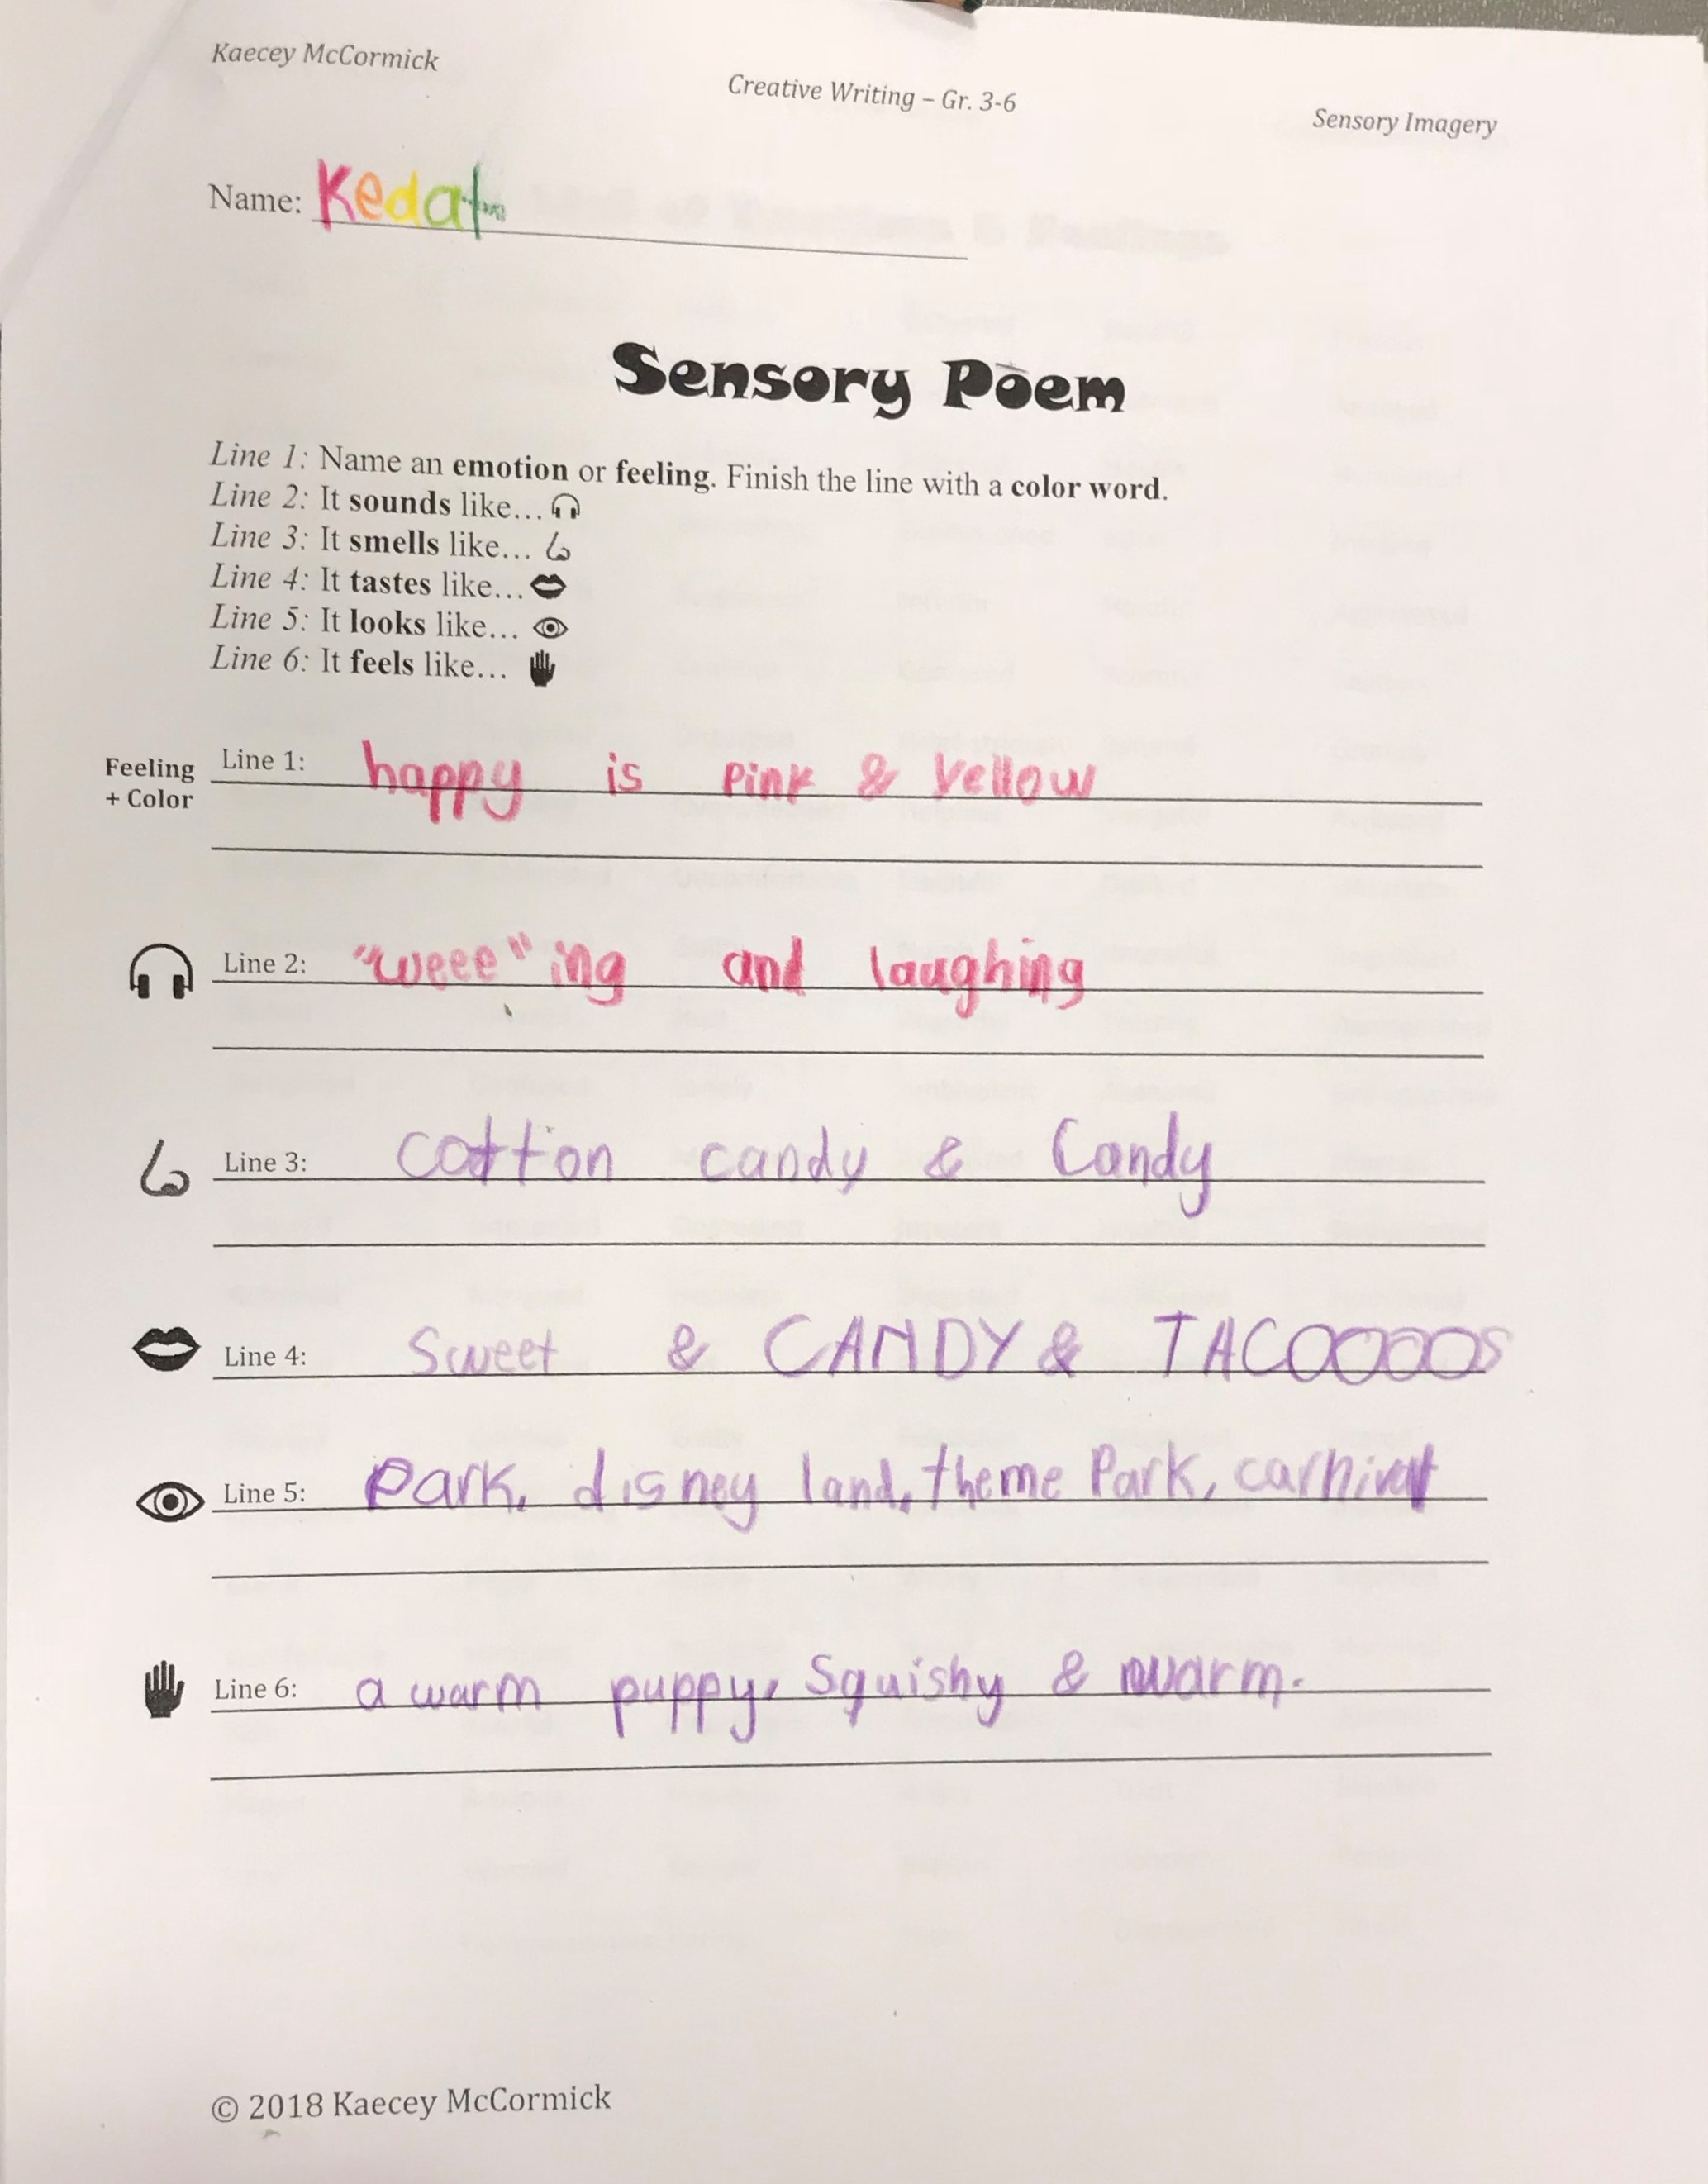 Kaecey McCormick
Creative Writing – Gr. 3-6
Sensory Imagery
Name:
Sensory Poem
Line 1: Name an emotion or feeling. Finish the line with a color word.
Line 2: It sounds like...
Line 3: It smells like...
Line 4: It tastes like...
Line 5: It looks like...
Line 6: It feels like...
Feeling + Color
Line 1: happy is Pink & Yellow
Line 2: "weee"ing and laughing
Line 3: cotton candy & Candy
Line 4: Sweet & CANDY & TACOOOOS
Line 5: Park, disney land, theme Park, carnival
Line 6: a warm puppy, Squishy & warm.
© 2018 Kaecey McCormick